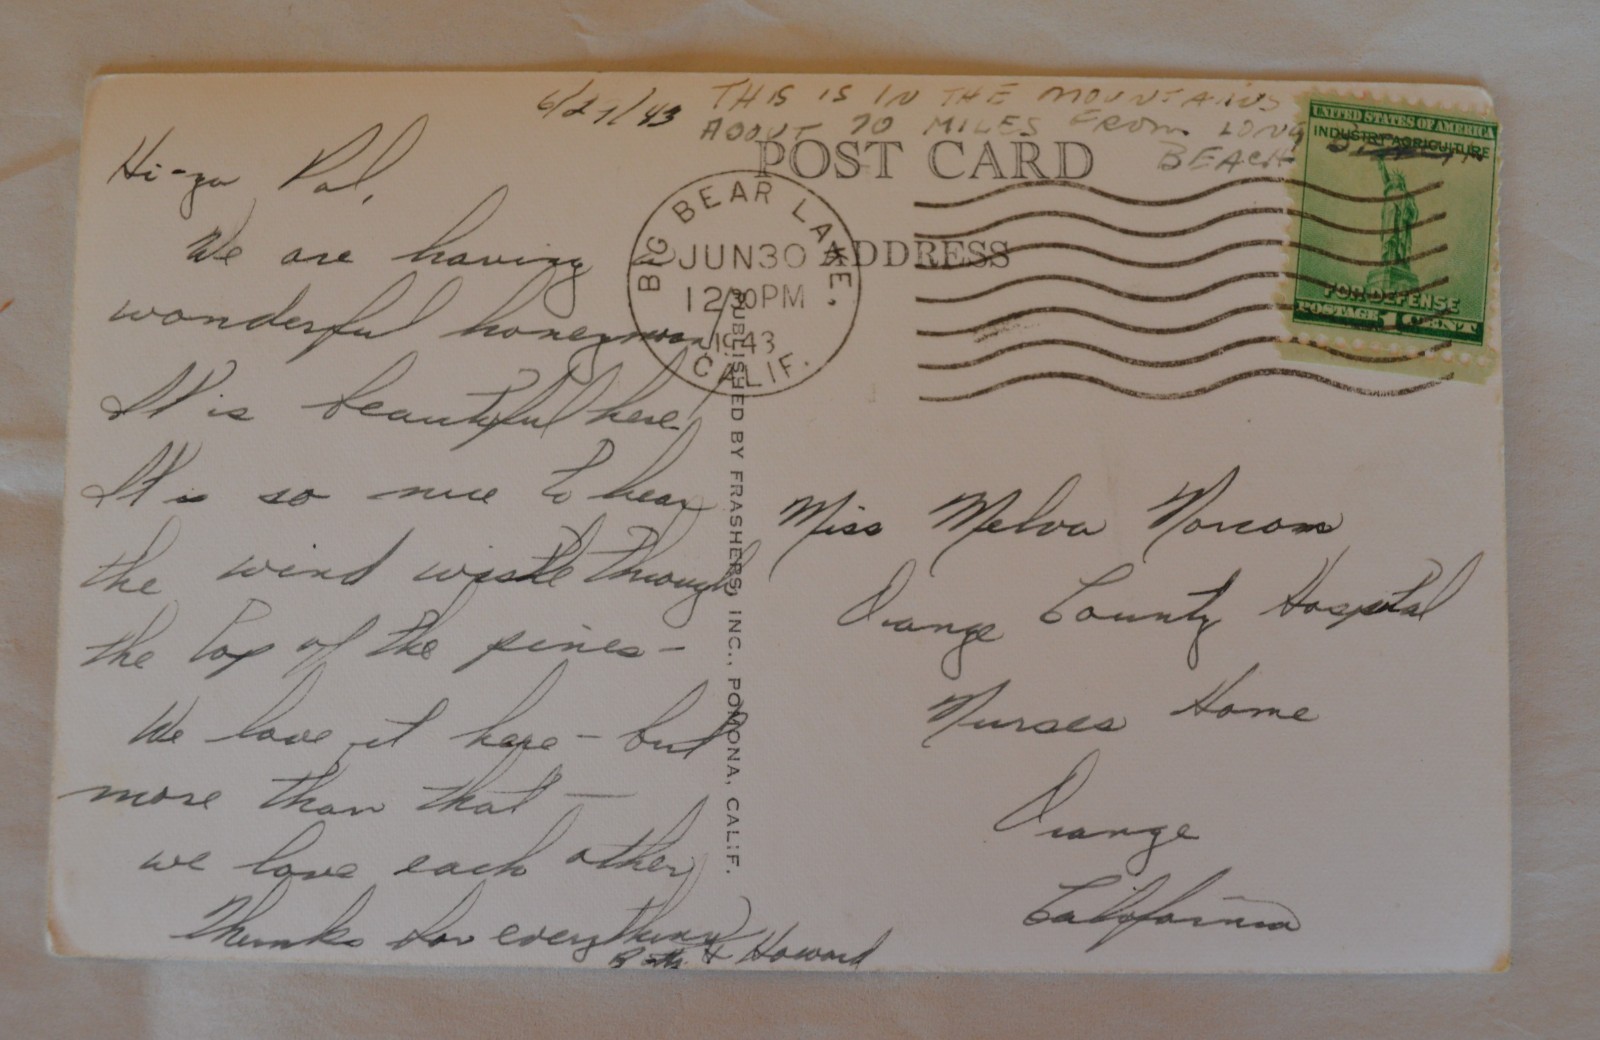 6/27/43
THIS IS IN THE MOUNTAINS
ABOUT 70 MILES FROM LONG
BEACH
POST CARD
ADDRESS
BIG BEAR LAKE,
JUN 30
12 30 PM
1943
CALIF.
UNITED STATES OF AMERICA
INDUSTRY AGRICULTURE
FOR DEFENSE
POSTAGE 1 CENT
Hi-ya Pal,
We are having
wonderful honeymoon
It is beautiful here.
It is so nice to hear
the wind wistle through
the top of the pines -
We love it here - but
more than that -
we love each other
Thanks for everything
& Howard
PUBLISHED BY FRASHERS, INC., POMONA, CALIF.
Miss Melva Norcom
Orange County Hospital
Nurses Home
Orange
California